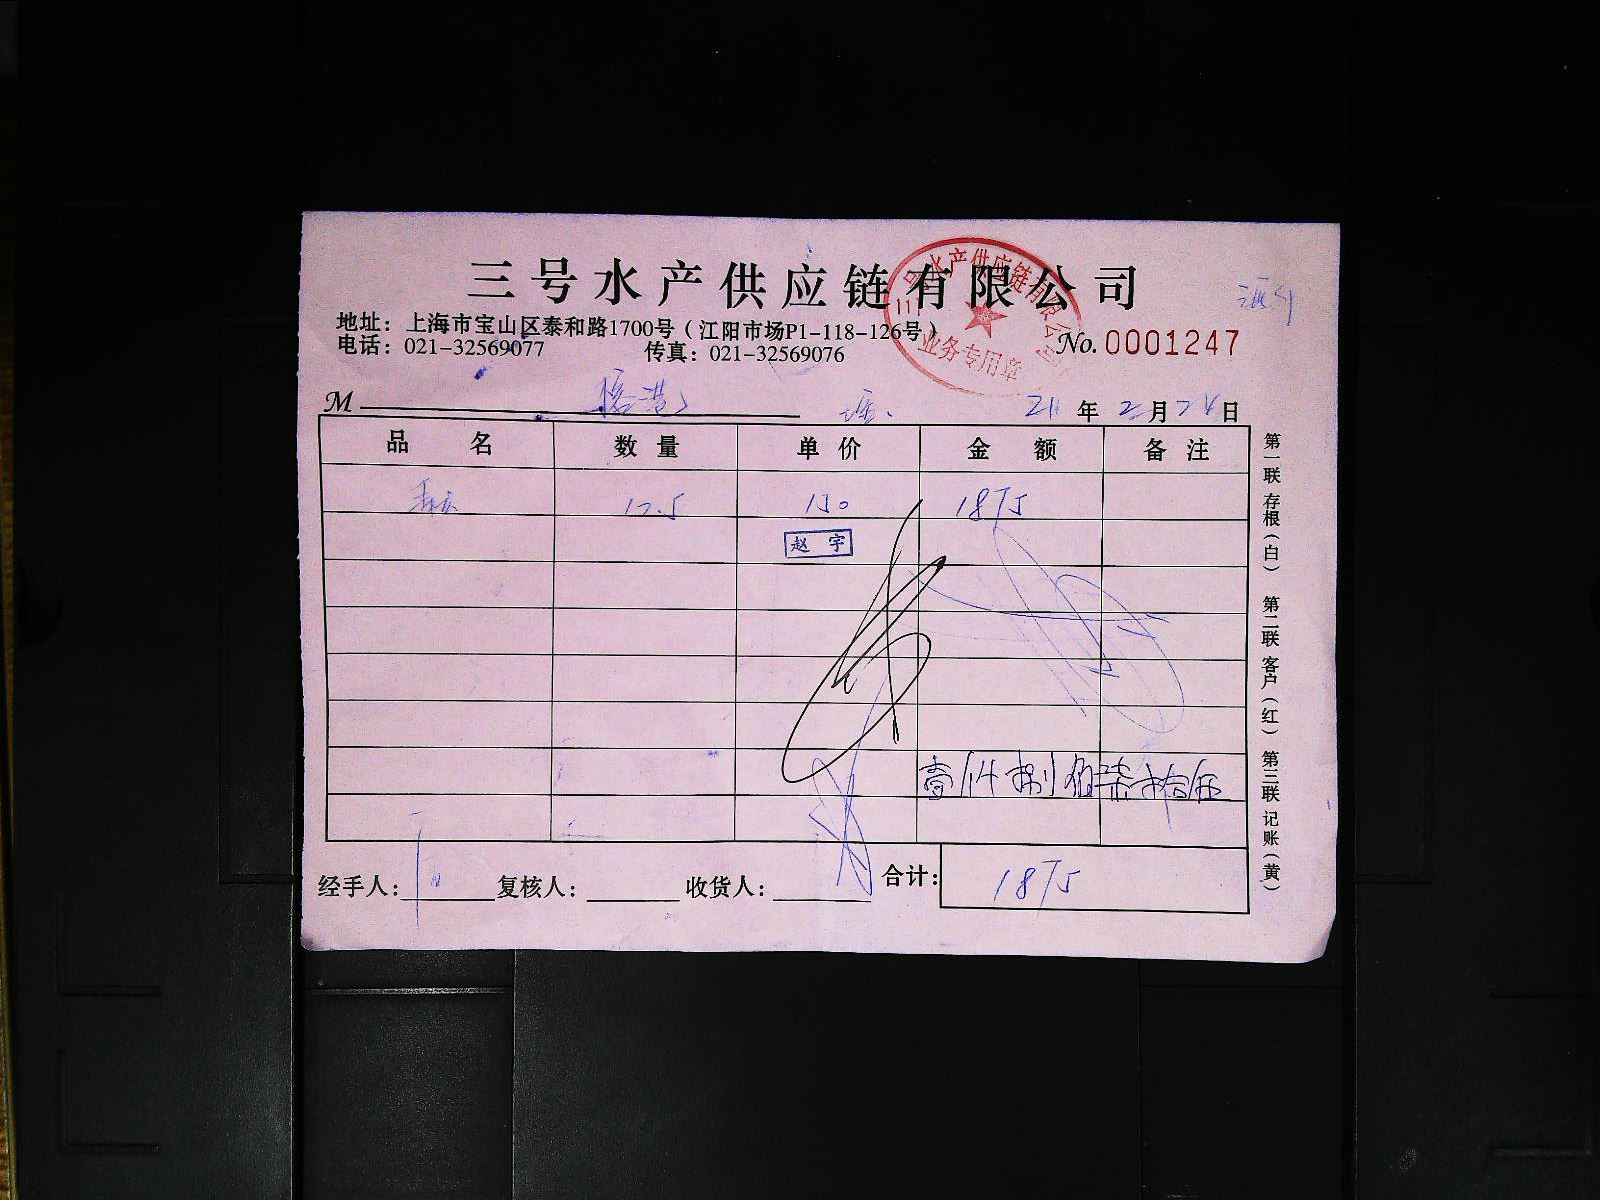 三号水产供应链有限公司
三号水产供应链有限公司
业务专用章
地址：上海市宝山区泰和路1700号（江阳市场P1-118-126号）
电话：021-32569077 传真：021-32569076 No.0001247
M 年 2月24日
品名 数量 单价 金额 备注
12.5 150 1875
赵宇
壹仟捌佰柒拾伍
经手人： 复核人： 收货人： 合计： 1875
第一联 存根（白） 第二联 客户（红） 第三联 记账（黄）